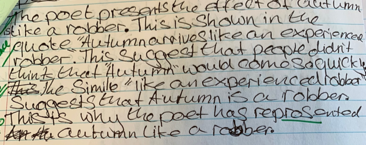 The poet presents the effect of autumn
like a robber. This is shown in the
quote "Autumn arrives like an experienced
robber. This Suggest that people didn't
think that Autumn would come so quickly
The Simile "like an experienced robber"
Suggests that Autumn is a robber.
This is why the poet has represented
autumn like a robber.